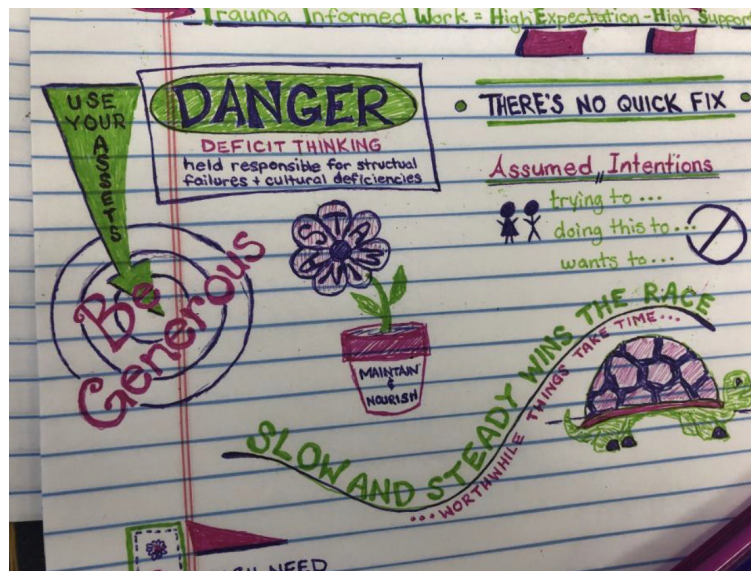 Trauma Informed Work = High Expectation - High Support
USE
YOUR
ASSETS
Be
Generous
DANGER
DEFICIT THINKING
held responsible for structual
failures + cultural deficiencies
• THERE'S NO QUICK FIX •
Assumed Intentions
trying to ...
doing this to ...
wants to ...
STAMINA
MAINTAIN
&
NOURISH
SLOW AND STEADY WINS THE RACE
...WORTHWHILE THINGS TAKE TIME...
NEED